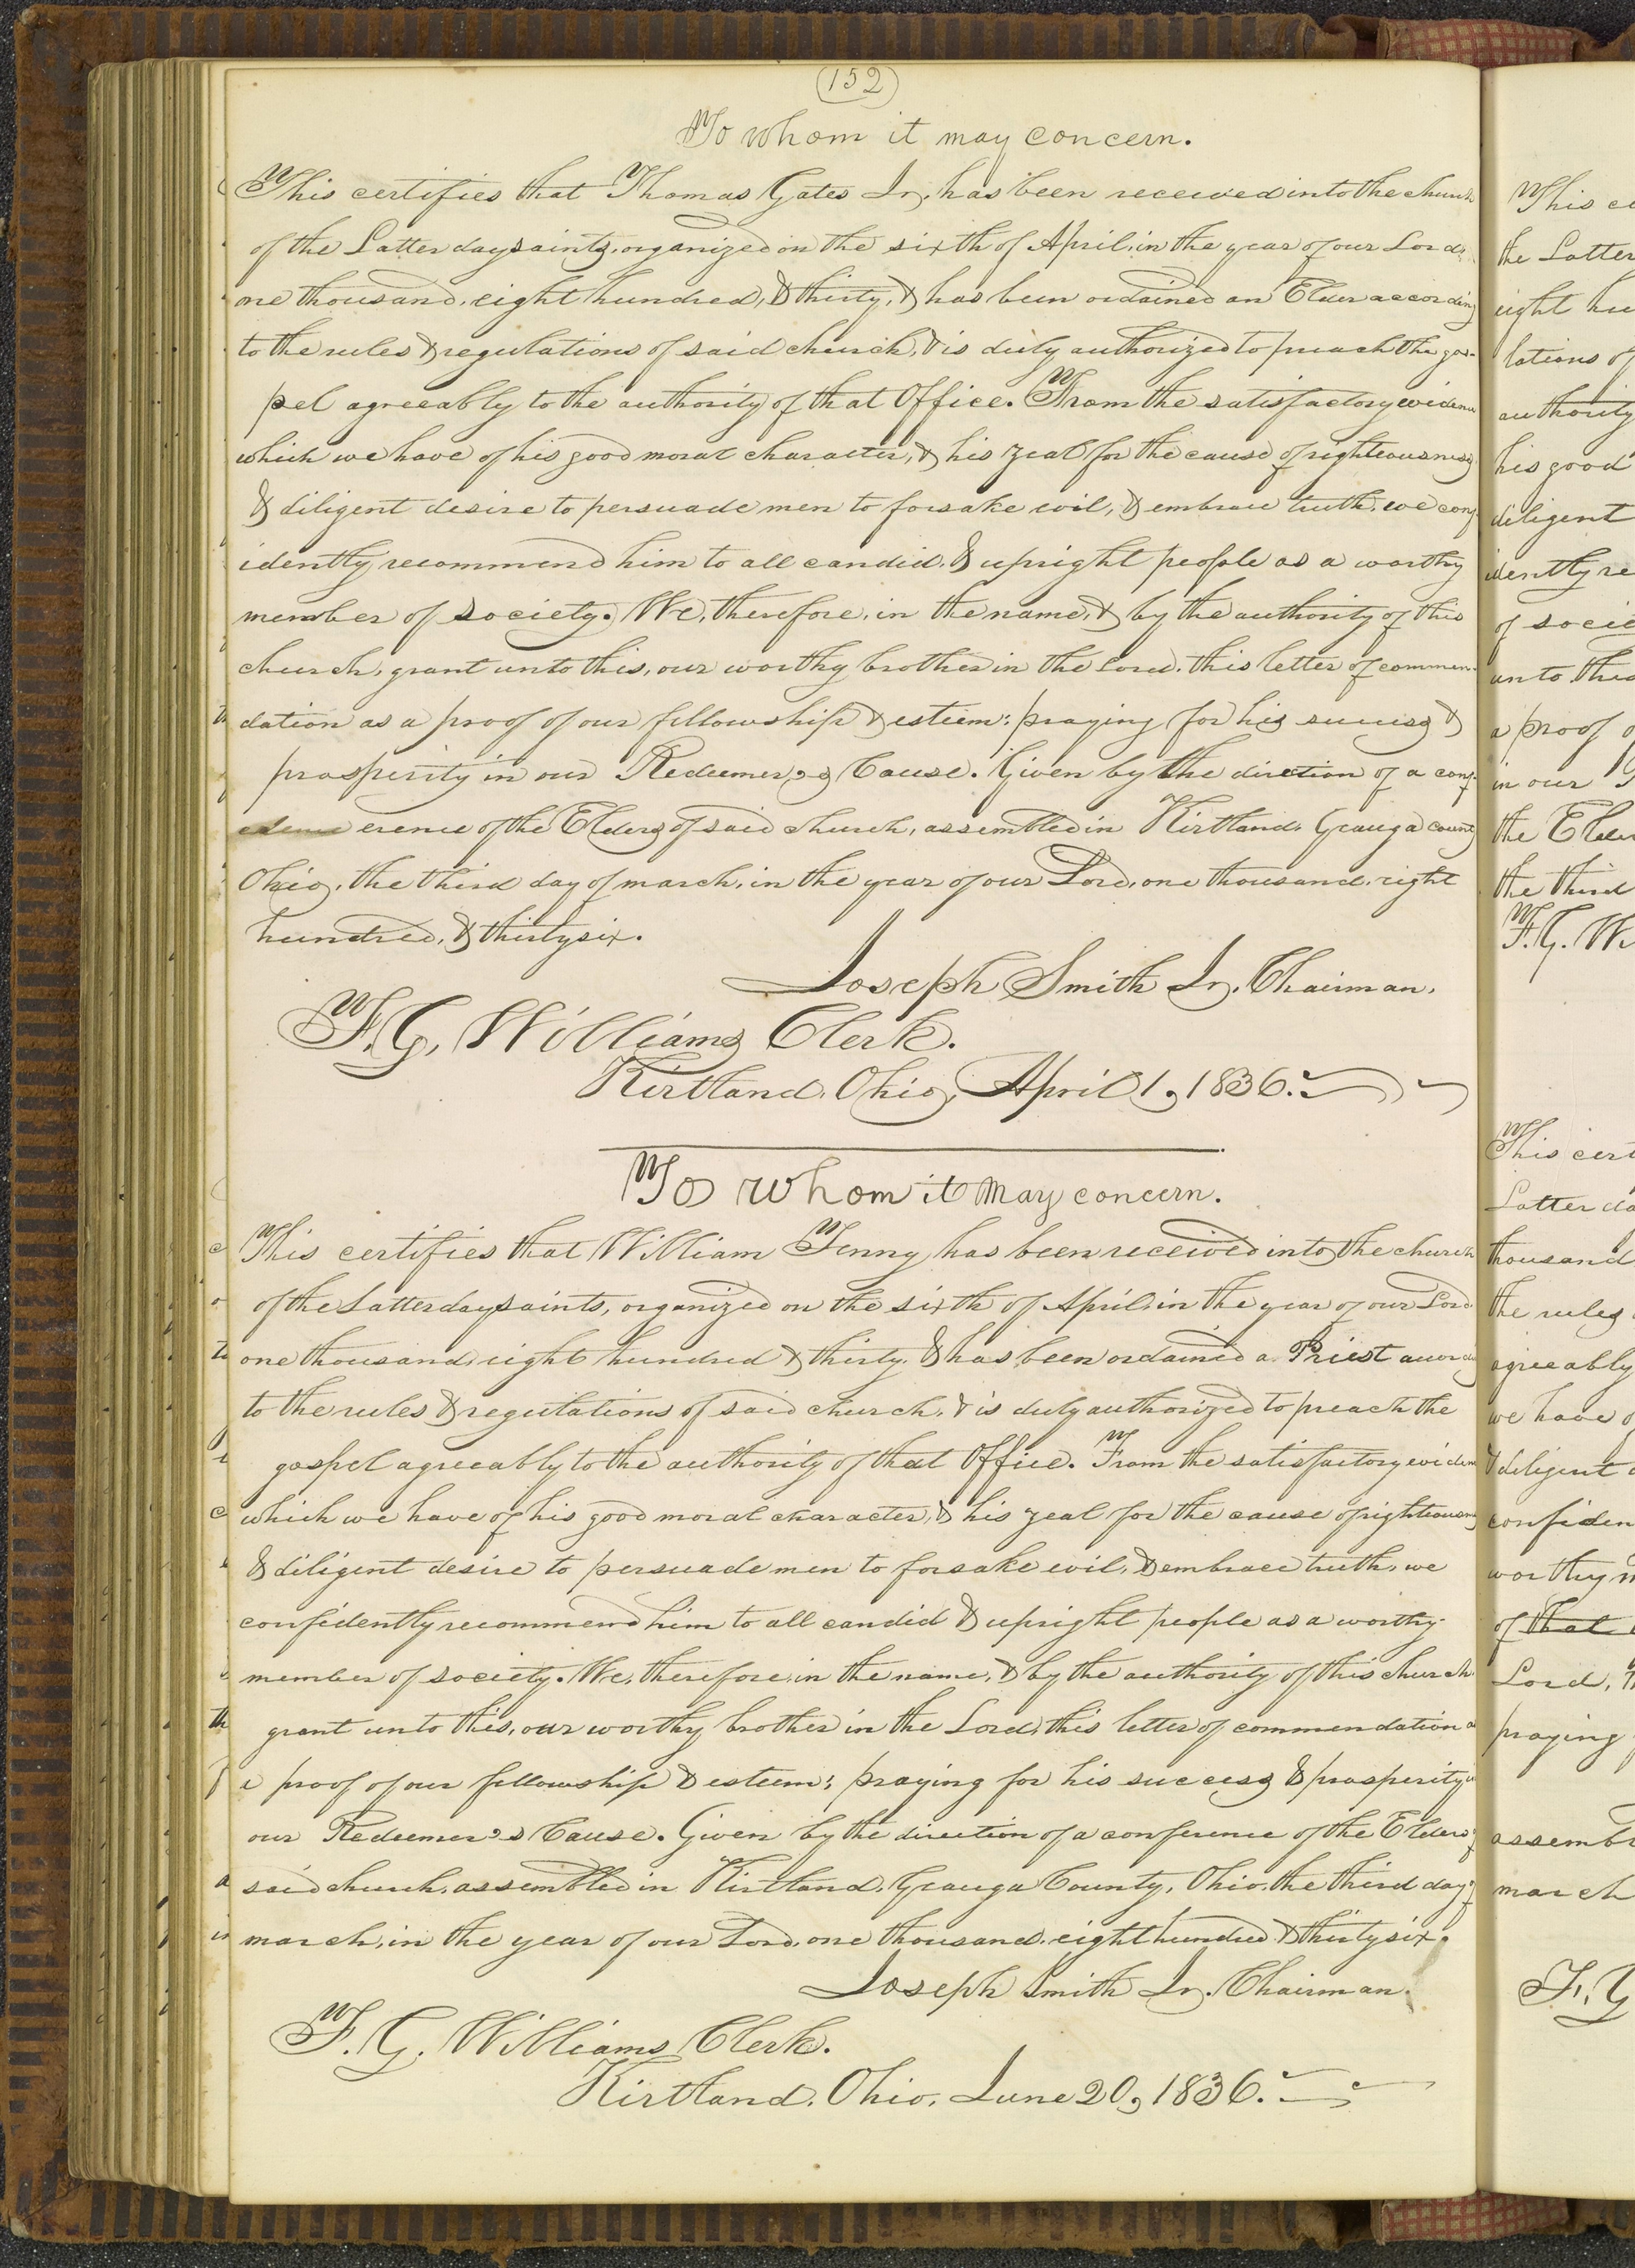 (152)
To whom it may concern.
This certifies that Thomas Gates Jr. has been received into the church
of the Latter day saints, organized on the sixth of April, in the year of our Lord,
one thousand, eight hundred, & thirty, & has been ordained an Elder according
to the rules & regulations of said church, & is duly authorized to preach the gos-
pel agreeably to the authority of that Office. From the satisfactory evidence
which we have of his good moral character, & his zeal for the cause of righteousness
& diligent desire to persuade men to forsake evil, & embrace truth, we conf
idently recommend him to all candid, & upright people as a worthy
member of society. We, therefore, in the name, & by the authority of this
church, grant unto this, our worthy brother in the Lord, this letter of commen-
dation as a proof of our fellowship & esteem: praying for his success &
prosperity in our Redeemer's Cause. Given by the direction of a conf-
erence of the Elders of said church, assembled in Kirtland, Geauga county
Ohio, the third day of march, in the year of our Lord, one thousand, eight
hundred, & thirty six.
Joseph Smith Jr. Chairman.
F. G. Williams Clerk.
Kirtland, Ohio, April 1, 1836.
To whom it may concern.
This certifies that William Tenny has been received into the church
of the Latter day saints, organized on the sixth of April, in the year of our Lord
one thousand, eight hundred & thirty, & has been ordained a Priest according
to the rules & regulations of said church, & is duly authorized to preach the
gospel agreeably to the authority of that Office. From the satisfactory evidence
which we have of his good moral character, & his zeal for the cause of righteousness
& diligent desire to persuade men to forsake evil, & embrace truth, we
confidently recommend him to all candid & upright people as a worthy
member of society. We, therefore, in the name, & by the authority of this church
grant unto this, our worthy brother in the Lord, this letter of commendation as
a proof of our fellowship & esteem; praying for his success & prosperity in
our Redeemer's Cause. Given by the direction of a conference of the Elders of
said church, assembled in Kirtland, Geauga County, Ohio, the third day of
march, in the year of our Lord, one thousand, eight hundred & thirty six.
Joseph Smith Jr. Chairman.
F. G. Williams Clerk.
Kirtland, Ohio, June 20, 1836.
This ce
the Latter
eight hu
lations of
authority
his good
diligent
idently re
of socie
unto this
a proof o
in our
the Elder
the third
F. G. W
This cert
Latter da
thousand
the rules
agreeably
we have o
& diligent
confiden
worthy m
of that
Lord,
praying
assembl
march
F. G